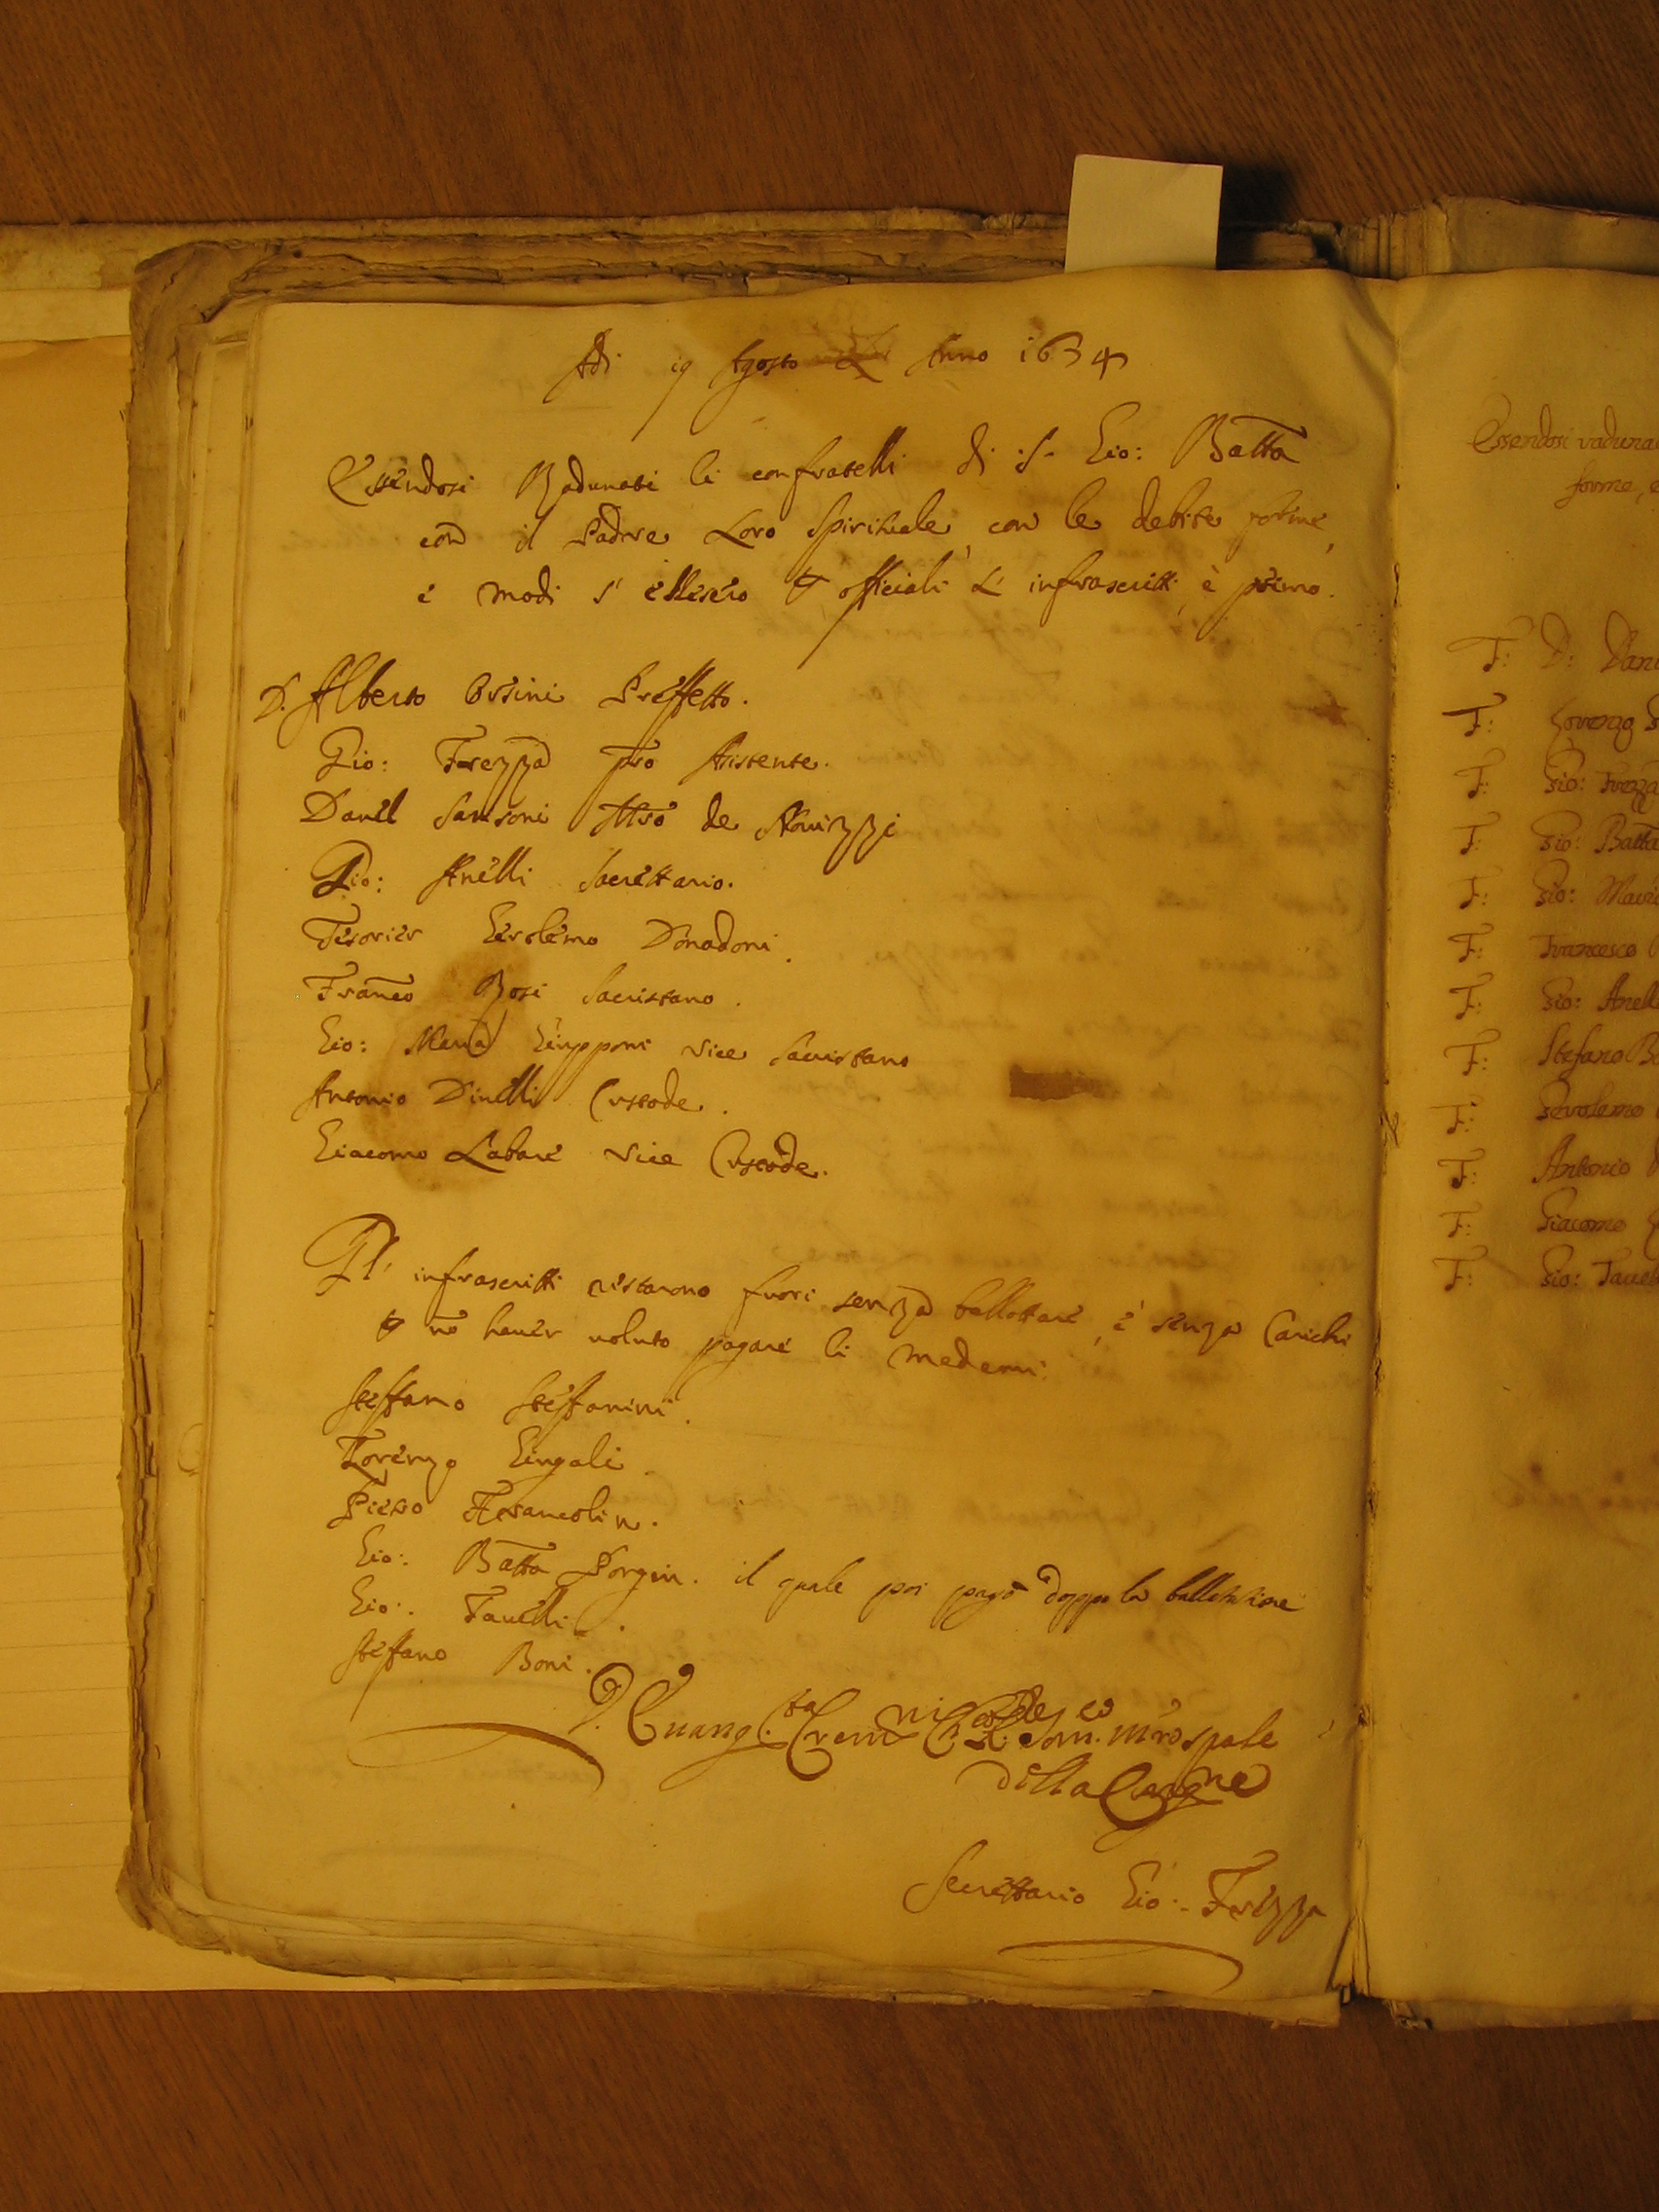 Adi 19 Agosto Anno 1634
Essendosi Radunati li confratelli di S. Gio: Batta
con il Padre Loro Spirituale, con le debite forme,
e modi s' ellesero p officiali l' infrascritti, è primo.
D. Alberto Orsini Preffetto.
Gio: Frezza Pro Asistente.
Danel Sansoni Mro de Novizzi
Gio: Anelli Secrettario.
Tesorier Gerolemo Donadoni.
Franco Bosi Sacristano.
Gio: Maria Gingponi vice Sacristano
Antonio Dinelli Custode.
Giacomo Labare Vice Custode.
Gl' infrascritti restarono fuori senza ballottare, è senza Carichi
p nō haver voluto pagare li medemi:
Steffano Steffanini.
Lorenzo Gingali
Pietro Francolin.
Gio: Batta Porgin. il quale poi pagò doppo la ballotatione
Gio: Tavelli.
Steffano Boni.
D. Evang.ta Com. mro spale
della Congne
Secrettario Gio: Frezza
Essendosi raduna
forme, e
F: D: Dani
F: Lorenzo S
F: Gio: Frezza
F: Gio: Batta
F: Gio: Maria
F: Francesco
F: Gio: Anell
F: Stefano B
F: Gerolemo
F: Antonio
F: Giacomo
F: Gio: Tavel